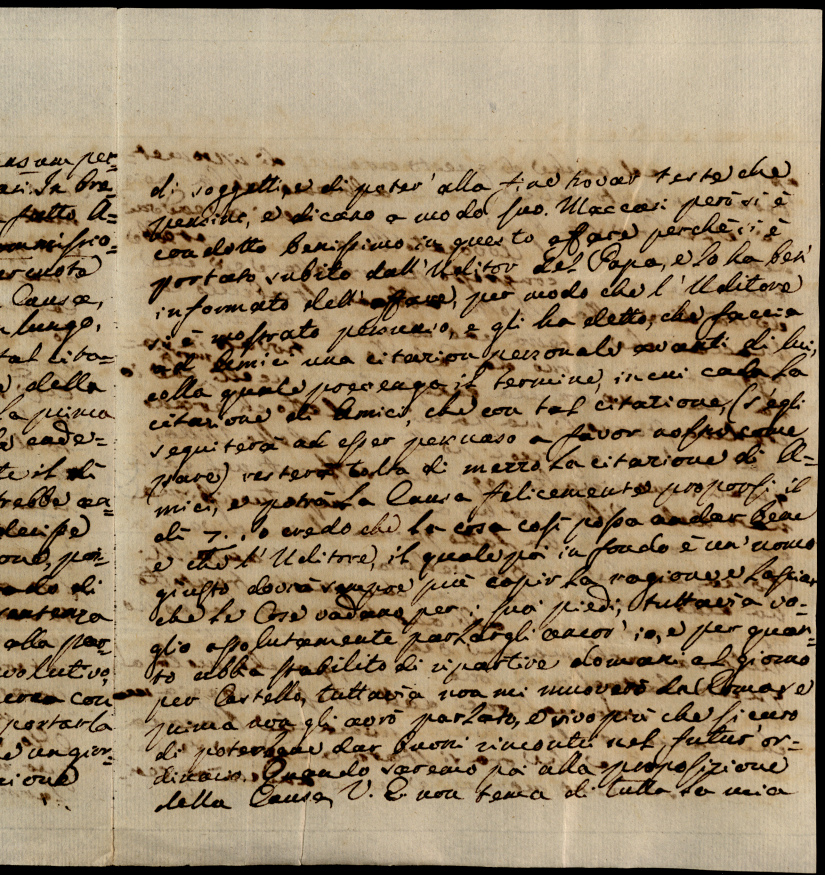 ens um per=
asi. In bre=
fatto A=
mmissio=
remota
Causa,
lungo,
tal cita=
della
la prima
cade=
te il dì
trebbe
decise
one, per
ado di
sentenza
alla par
volutivo,
con
portarla
un gior=
zione
di soggetti, e di poter' alla fine trovar teste che
pensino, e dicano a modo suo. Maccari però si è
condotto benissimo in questo affare perchè si è
portato subito dall'Uditor del Papa, e lo ha ben'
informato dell'affare, per modo che l'Uditore
si è mostrato persuaso, e gli ha detto, che faccia
all'Amici una citazion personale avanti di lui,
colla quale prevenga il termine, in cui cada la
citazione di Amici, che con tal citazione, (s'egli
seguiterà ad esser persuaso a favor nostro come
pare) resterà tolta di mezzo la citazione di A=
mici, e potrà la Causa felicemente proporsi il
dì 7. Io credo che la cosa così possa andar bene
e che l'Uditore, il quale poi in fondo è un'uomo
giusto dovrà sempre più capir la ragione e lasciar
che le Cose vadano per i suoi piedi, tuttavia vo=
glio assolutamente parlargli ancor' io, e per quan=
to abbia stabilito di ripartire domani al giorno
per Castello, tuttavia non mi muoverò da Comare
prima non gli avrò parlato, e vivo più che sicuro
di potergliene dar buoni riscontri nel futur' or=
dinario. Quando saremo poi alla proposizione
della Causa, V. E. non tema di tutta la mia